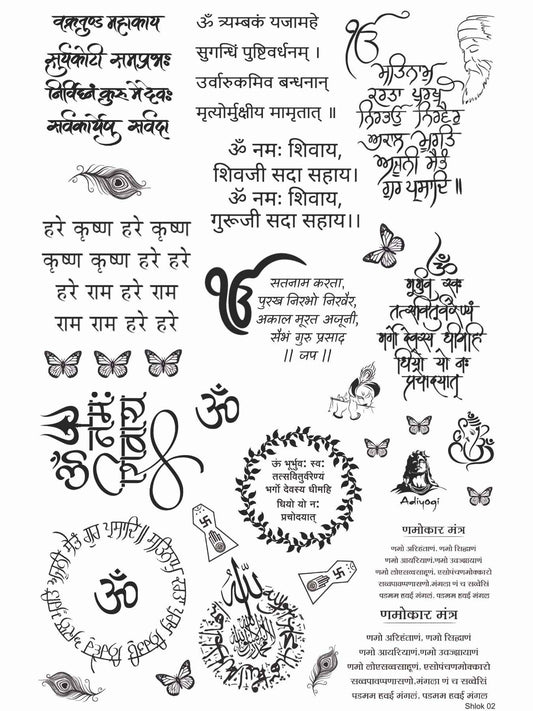 वक्रतुण्ड महाकाय
सुर्यकोटी समप्रभः
निर्विघ्नं कुरु मे देवः
सर्वकार्येषु सर्वदा
ॐ त्र्यम्बकं यजामहे
सुगन्धिं पुष्टिवर्धनम् ।
उर्वारुकमिव बन्धनान्
मृत्योर्मुक्षीय मामृतात् ॥
ੴ
ਸਤਿਨਾਮੁ
ਕਰਤਾ ਪੁਰਖੁ
ਨਿਰਭਉ ਨਿਰਵੈਰੁ
ਅਕਾਲ ਮੂਰਤਿ
ਅਜੂਨੀ ਸੈਭੰ
ਗੁਰ ਪ੍ਰਸਾਦਿ ॥
ॐ नमः शिवाय,
शिवजी सदा सहाय।
ॐ नमः शिवाय,
गुरूजी सदा सहाय।।
हरे कृष्ण हरे कृष्ण
कृष्ण कृष्ण हरे हरे
हरे राम हरे राम
राम राम हरे हरे
ੴ
सतनाम करता,
पुरख निरभो निरवैर,
अकाल मूरत अजूनी,
सैभं गुरु प्रसाद
|| जप ||
ॐ
भूर्भुव स्वः
तत्सवितुर्वरेण्यं
भर्गो देवस्य धीमहि
धियो यो नः
प्रचोदयात्
ॐ नमः शिवाय
ॐ
ऊं भूर्भुवः स्वः
तत्सवितुर्वरेण्यं
भर्गो देवस्य धीमहि
धियो यो नः
प्रचोदयात्
Adiyogi
णमोकार मंत्र
णमो अरिहंताणं. णमो सिद्धाणं
णमो आयरियाणं.णमो उवज्झायाणं
णमो लोएसव्वसाहूणं. एसोपंचणमोक्कारो
सव्वपावप्पणासणो.मंगला णं च सव्वेसिं
पडमम हवई मंगल
णमोकार मंत्र
णमो अरिहंताणं. णमो सिद्धाणं
णमो आयरियाणं.णमो उवज्झायाणं
णमो लोएसव्वसाहूणं. एसोपंचणमोक्कारो
सव्वपावप्पणासणो.मंगला णं च सव्वेसिं
पडमम हवई मंगलं. पडमम हवई मंगलं
ॐ
Shlok 02